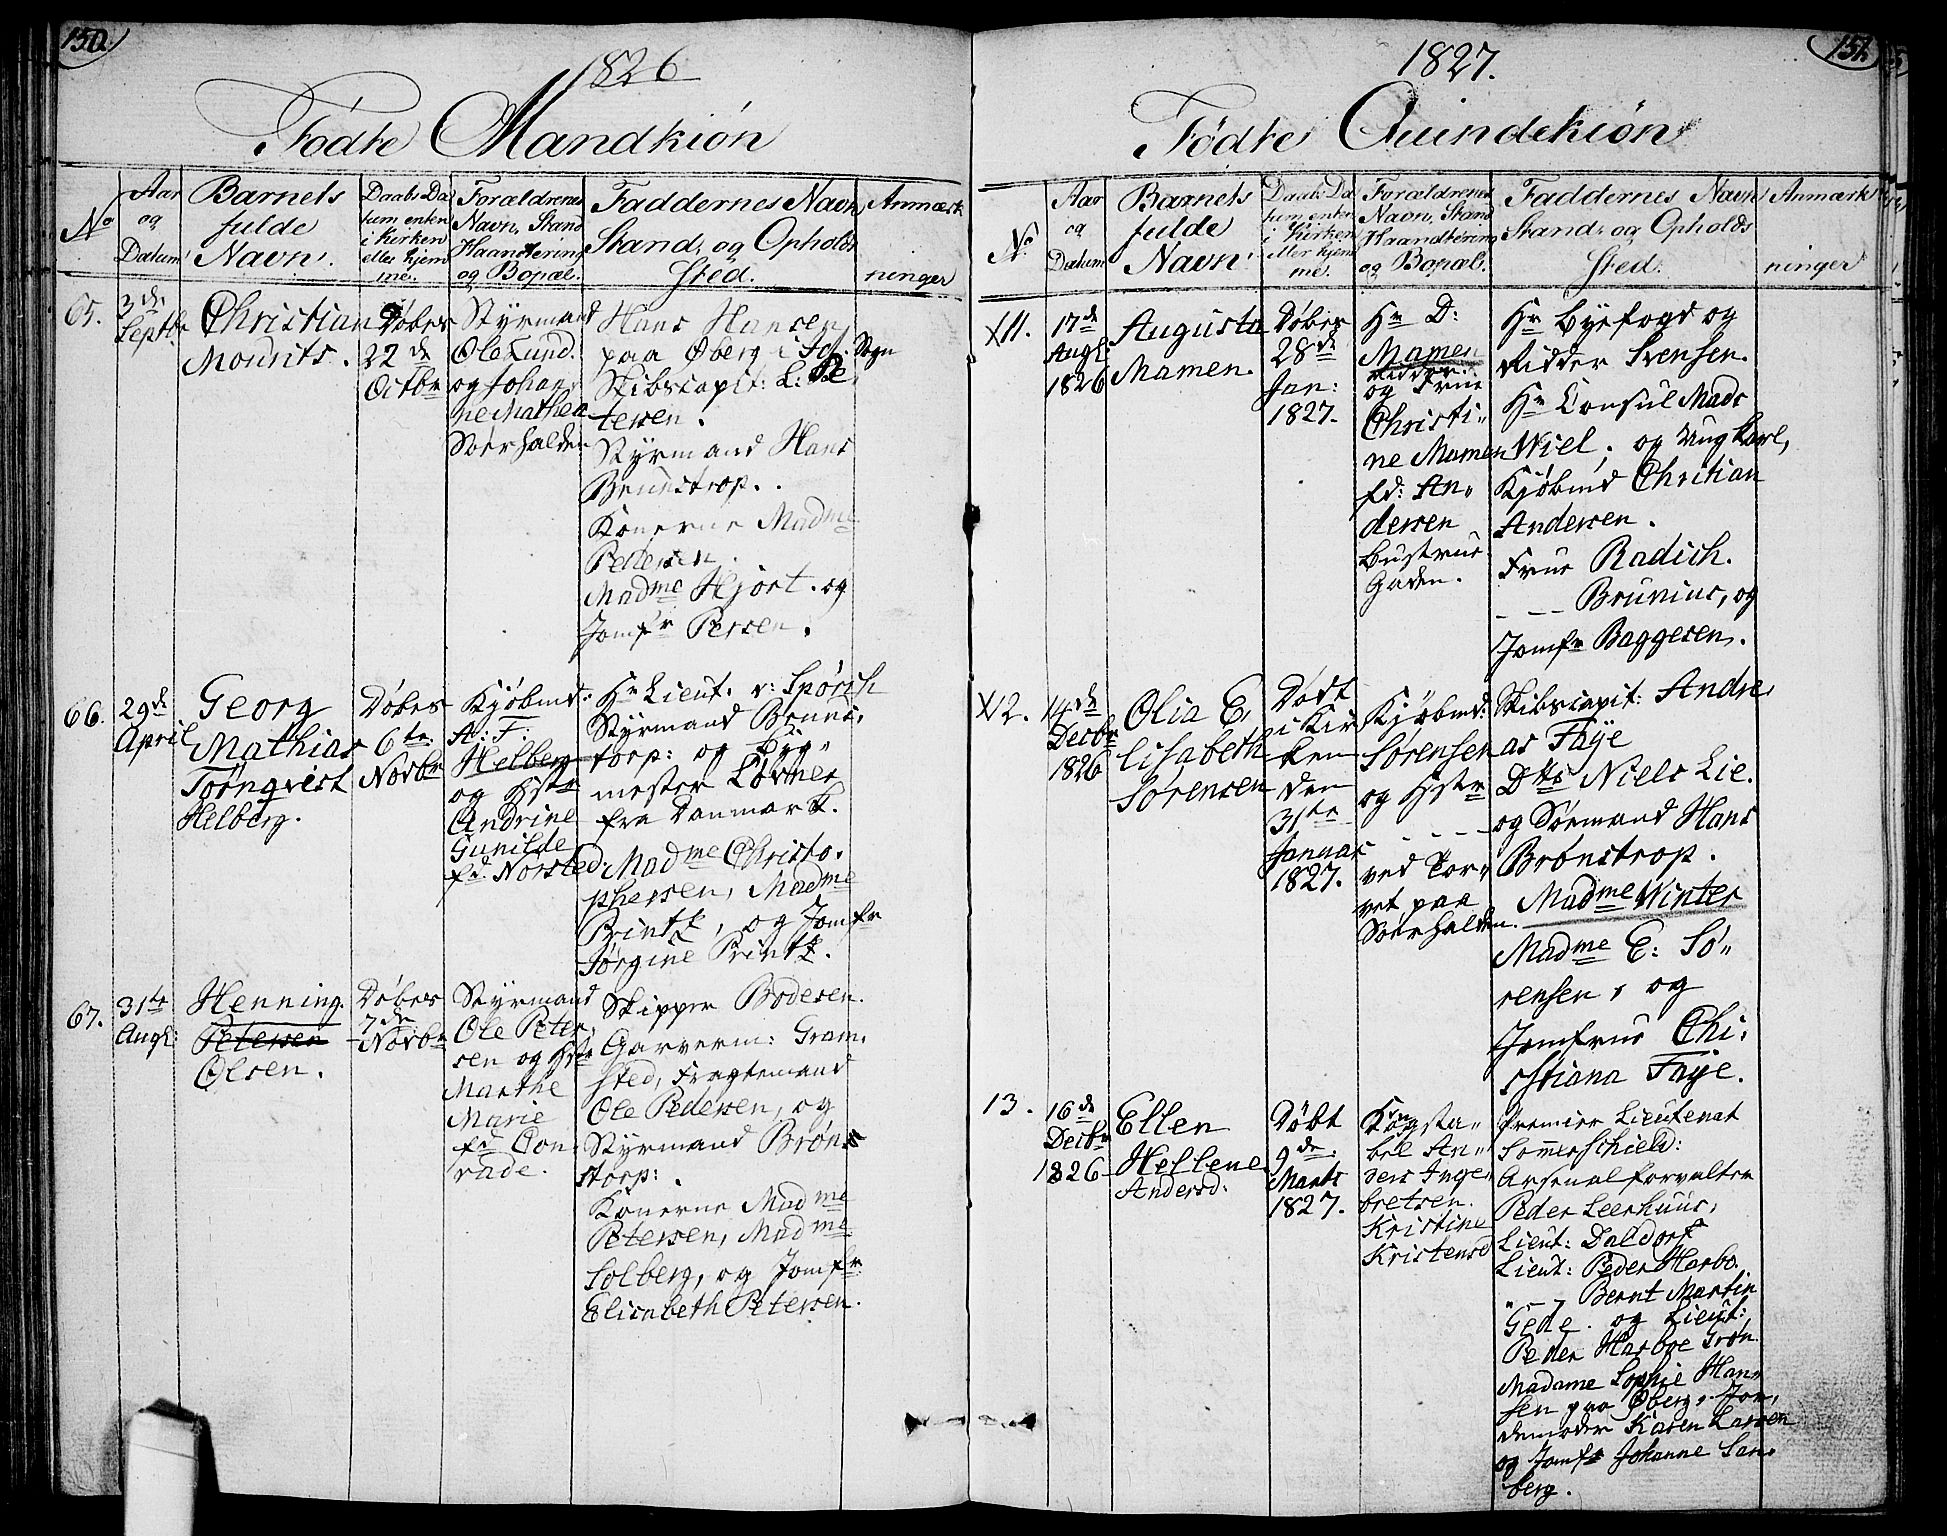 150.
1826
Fødte Mandkiön
No
Aar
og
Datum
Barnets
fulde
Navn.
Daabs Da
tum enten
i Kirken
eller hjem
me.
Forældrenes
Navn, Stand
Haandtering
og Bopæl.
Faddernes Navn
Stand, og Opholds
Sted.
Anmærk
ninger
65.
3de
Septbr
Christian
Mourits.
Døbes
22de
Octbr
Styrmand
Ole Lund.
og Johan
ne Mathea
Soerhalden
Hans Hansen
paa Øberg i Id. Sogn
Skibscapit: L: Pe
tersen.
Styrmand Hans
Brunstrop.
Konerne Madme
Petersen.
Madme Hjort. og
Jomfr Persen.
66.
29de
April
Georg
Mathias
Törnqvist
Helberg.
Døbes
6te
Novbr
Kjöbmd:
A: F:
Helberg
og Hstr
Andrine
Gunilde
fd. Norsted.
Hr Lieut. v: Spørch
Styrmand Bruns.
torp: og Byg-
mester Lövmer
fra Danmark.
Madme Christo.
phersen, Madme
Printz, og Jomfr
Jørgine Printz.
67.
31te
Augt:
Henning.
Petersen
Olsen.
Døbes
7de
Novbr
Styrmand
Ole Peter,
sen og Hstr
Marthe
Marie
fd Con,
rade.
Skipper Bodesen.
Garverm: Gram.
sted, Fragtemand
Ole Pedersen, og
Styrmand Bröns
storp:
Konerne Madme
Petersen, Madme
Solberg, og Jomfr
Elisabeth Petersen.
151.
1827.
Fødte Quindekiön
No.
Aar
og
Datum
Barnets
fulde
Navn.
Daabs Da
tum enten
i Kirken
eller hjem
me.
Forældrenes
Navn, Stand
Haandtering
og Bopæl.
Faddernes Navn
Stand, og Opholds
Sted.
Anmærk
ninger
X11.
17de
Augt:
1826
Augusta
Mamen.
Døbes
28de
Jan:
1827.
Hr D:
Mamen
Ridder
og Frue
Christi-
ne Mamen
fd: An-
dersen
Bustrue
Gaden.
Hr Byefogd og
Ridder Svensen.
Hr Consul Mads
Wiel. og Ungkarl,
Kjöbmd Christian
Andersen.
Frue Radich.
- — Brunius, og
Jomfr Baggesen.
X12.
14de
Decbr
1826
Olia E,
lisabeth
Sörensen
Dødt
i Kir
ken
den
31te
Januar
1827.
Kjöbmd:
Sörensen
og Hstr
- - - -
ved Tor-
vet paa
Soerhalden.
Skibscapit: Andre,
as Faÿe
Dtto Niels Lie.
og Sörmand Hans
Brönstrop.
Madme Winter
Madme E: Sö-
rensen, og
Jomfrue Chi-
stiana Faye.
13.
16de
Decbr
1826
Ellen
Hellene
Andersd:
Døbt
9de
Marts
1827.
Konsta-
bel An-
ders Inge-
bretsen.
Kristine
Kristensd
Premier Lieutenat
Sommerschield:
Arsenalforvalter
Peder Leerhuus,
Lieut: Daldorf
Lieut: Peder Harbo.
„ — „ Bernt Martin
Gede. og Lieut:
Peder Harboe Grön
Madame Sophie Han-
sen paa Øberg, Jor,
demoder Karen Larsen
og Jomfr Johanne San-
berg.